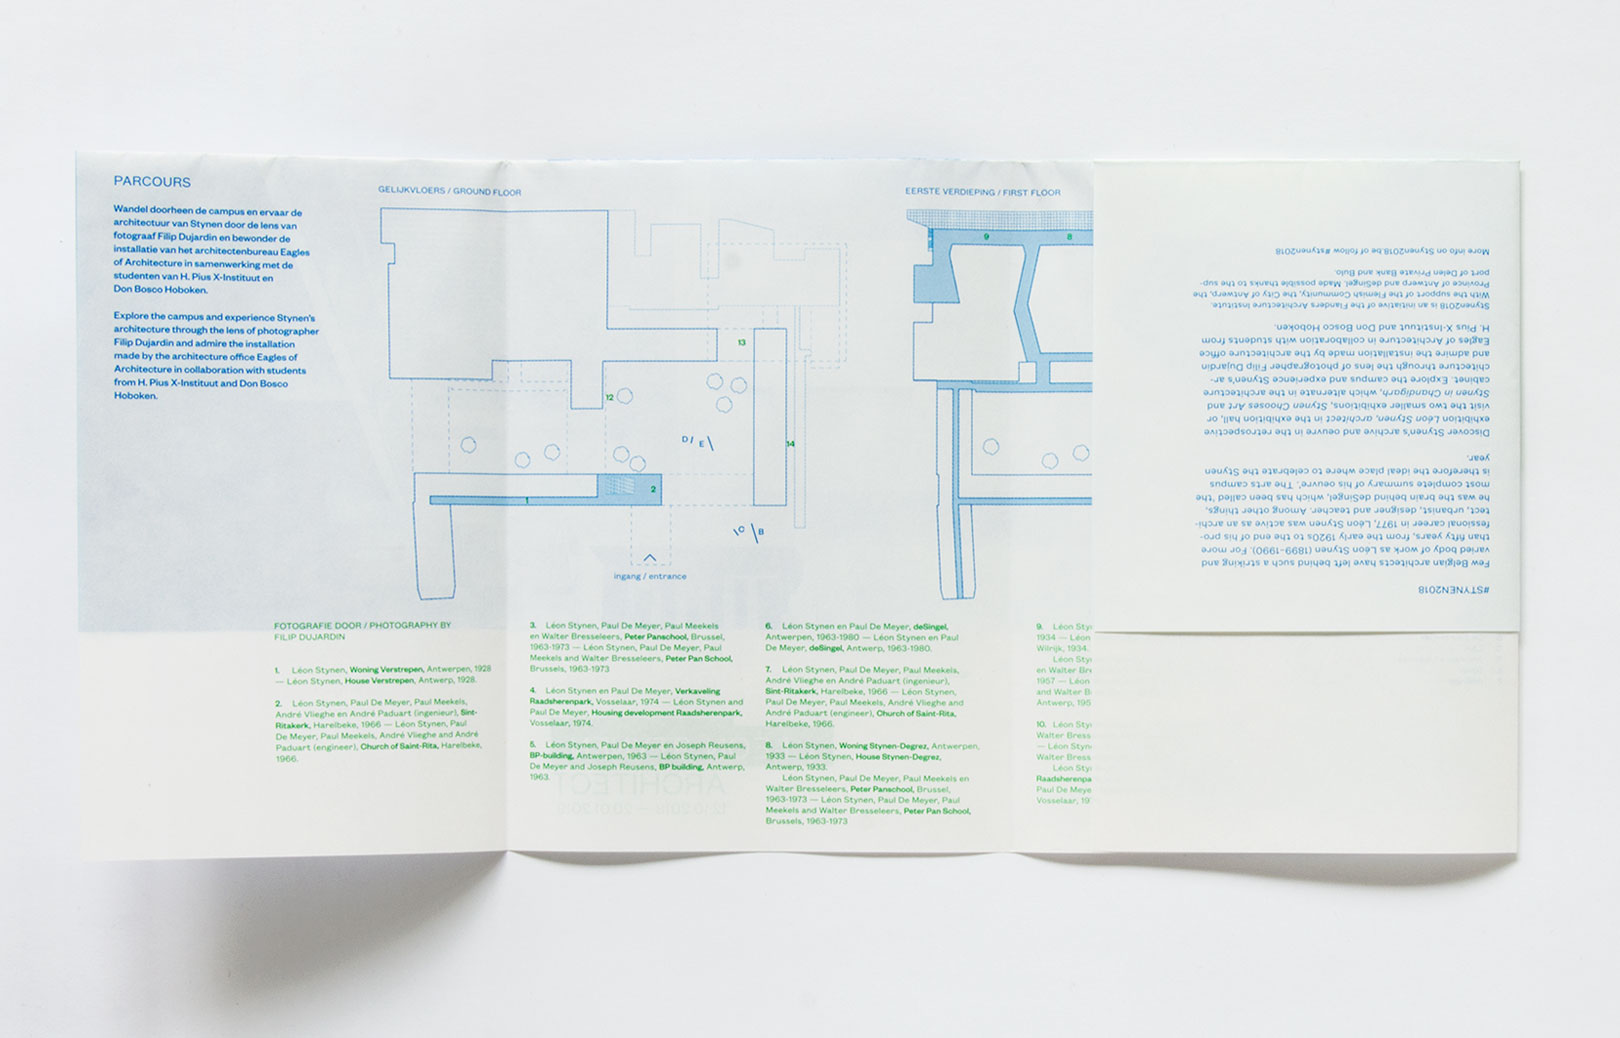 PARCOURS
Wandel doorheen de campus en ervaar de
architectuur van Stynen door de lens van
fotograaf Filip Dujardin en bewonder de
installatie van het architectenbureau Eagles
of Architecture in samenwerking met de
studenten van H. Pius X-Instituut en
Don Bosco Hoboken.
Explore the campus and experience Stynen's
architecture through the lens of photographer
Filip Dujardin and admire the installation
made by the architecture office Eagles of
Architecture in collaboration with students
from H. Pius X-Instituut and Don Bosco
Hoboken.
GELIJKVLOERS / GROUND FLOOR
13
12
D/ E\
14
2
1
\C \B
ingang / entrance
EERSTE VERDIEPING / FIRST FLOOR
9 8
FOTOGRAFIE DOOR / PHOTOGRAPHY BY
FILIP DUJARDIN
1. Léon Stynen, Woning Verstrepen, Antwerpen, 1928
— Léon Stynen, House Verstrepen, Antwerp, 1928.
2. Léon Stynen, Paul De Meyer, Paul Meekels,
André Vlieghe en André Paduart (ingenieur), Sint-
Ritakerk, Harelbeke, 1966 — Léon Stynen, Paul
De Meyer, Paul Meekels, André Vlieghe and André
Paduart (engineer), Church of Saint-Rita, Harelbeke,
1966.
3. Léon Stynen, Paul De Meyer, Paul Meekels
en Walter Bresseleers, Peter Panschool, Brussel,
1963-1973 — Léon Stynen, Paul De Meyer, Paul
Meekels and Walter Bresseleers, Peter Pan School,
Brussels, 1963-1973
4. Léon Stynen en Paul De Meyer, Verkaveling
Raadsherenpark, Vosselaar, 1974 — Léon Stynen and
Paul De Meyer, Housing development Raadsherenpark,
Vosselaar, 1974.
5. Léon Stynen, Paul De Meyer en Joseph Reusens,
BP-building, Antwerpen, 1963 — Léon Stynen, Paul
De Meyer and Joseph Reusens, BP building, Antwerp,
1963.
ARCHITECT
12.10.2018 — 20.01.2019
6. Léon Stynen en Paul De Meyer, deSingel,
Antwerpen, 1963-1980 — Léon Stynen en Paul
De Meyer, deSingel, Antwerp, 1963-1980.
7. Léon Stynen, Paul De Meyer, Paul Meekels,
André Vlieghe en André Paduart (ingenieur),
Sint-Ritakerk, Harelbeke, 1966 — Léon Stynen,
Paul De Meyer, Paul Meekels, André Vlieghe and
André Paduart (engineer), Church of Saint-Rita,
Harelbeke, 1966.
8. Léon Stynen, Woning Stynen-Degrez, Antwerpen,
1933 — Léon Stynen, House Stynen-Degrez,
Antwerp, 1933.
Léon Stynen, Paul De Meyer, Paul Meekels en
Walter Bresseleers, Peter Panschool, Brussel,
1963-1973 — Léon Stynen, Paul De Meyer, Paul
Meekels and Walter Bresseleers, Peter Pan School,
Brussels, 1963-1973
9. Léon Sty
1934 — Léon
Wilrijk, 1934.
Léon Sty
en Walter Br
1957 — Léon
and Walter B
Antwerp, 195
10. Léon Sty
Walter Bress
— Léon Styn
Walter Bress
Léon Sty
Raadsherenpa
Paul De Meye
Vosselaar, 19
#STYNEN2018
Few Belgian architects have left behind such a striking and
varied body of work as Léon Stynen (1899–1990). For more
than fifty years, from the early 1920s to the end of his pro-
fessional career in 1977, Léon Stynen was active as an archi-
tect, urbanist, designer and teacher. Among other things,
he was the brain behind deSingel, which has been called 'the
most complete summary of his oeuvre'. The arts campus
is therefore the ideal place where to celebrate the Stynen
year.
Discover Stynen's archive and oeuvre in the retrospective
exhibition Léon Stynen, architect in the exhibition hall, or
visit the two smaller exhibitions, Stynen Chooses Art and
Stynen in Chandigarh, which alternate in the architecture
cabinet. Explore the campus and experience Stynen's ar-
chitecture through the lens of photographer Filip Dujardin
and admire the installation made by the architecture office
Eagles of Architecture in collaboration with students from
H. Pius X-Instituut and Don Bosco Hoboken.
Stynen2018 is an initiative of the Flanders Architecture Institute.
With the support of the Flemish Community, the City of Antwerp, the
Province of Antwerp and deSingel. Made possible thanks to the sup-
port of Delen Private Bank and Bulo.
More info on Stynen2018.be or follow #stynen2018